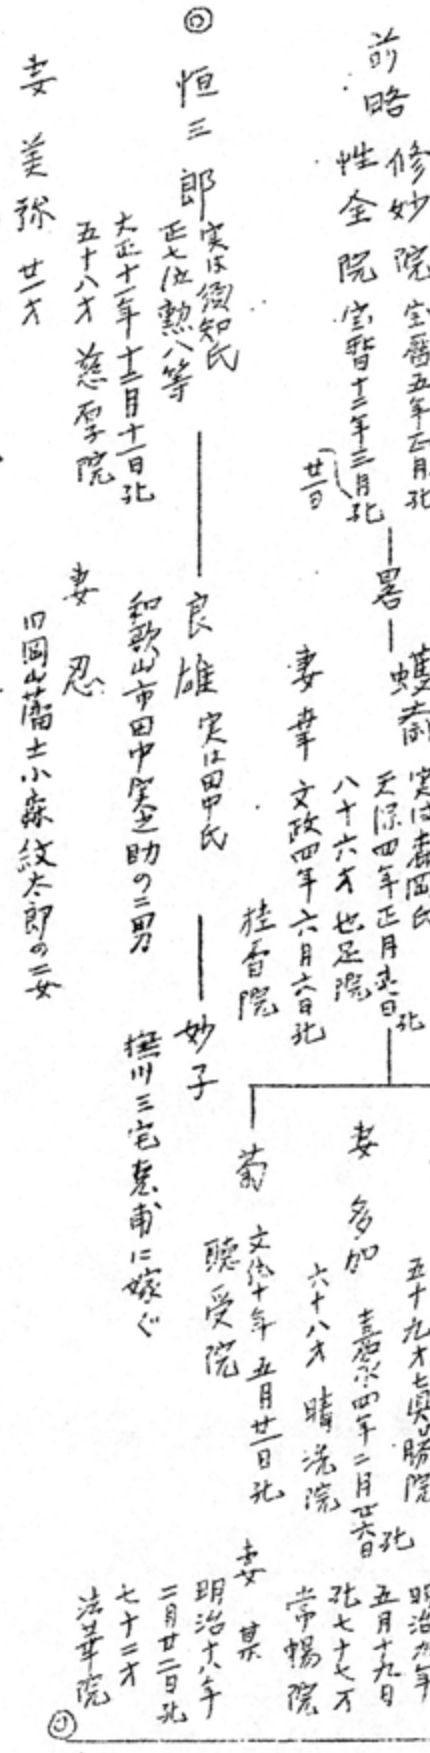 前略
修妙院 宝暦五年正月死
性全院 宝暦十二年三月死
廿一日
畧
実は森岡氏
天保四年正月 日死
八十六才 也足院
妻 幸 文政四年六月六日死
桂香院
五十九才 真勝院
妻 多加 嘉永四年二月廿六日死
六十八才 晴洗院
菊 文化十年五月廿一日死
聴受院
明治九年
五月十九日
死七十七才
常暢院
妻 某
明治十八年
二月廿二日死
七十二才
法華院
◎
◎ 恒三郎 実は須知氏
正七位勲八等
大正十一年十二月十一日死
五十八才 慈厚院
妻 美弥 廿一才
良雄 実は田中氏
和歌山市田中実之助の二男
妻 忍
旧岡山藩士小森紋太郎の二女
妙子
撫川三宅恵甫に嫁ぐ